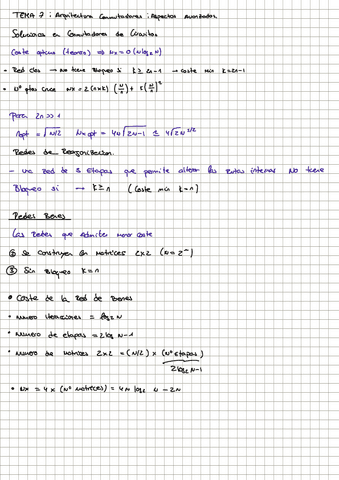 TEMA 7: Arquitectura Conmutadores: Aspectos Avanzados.
Soluciones en Conmutadores de Circuitos
Coste optimo (teorico) ⇒ Nx = O(N log₂ N)
- Red Clos → No tiene Bloqueo si k ≥ 2n-1 → coste min k = 2n-1
• Nº ptos cruce Nx = 2(n×k)(N/n) + k(N/n)²
Para 2n >> 1
nopt = √N/2 Nx opt = 4N√2N-1 ≤ 4√2N^3/2
Redes de Reorganización.
- una Red de 3 Etapas que permite alterar las rutas internas No tiene
Bloqueo si → k ≥ n (Coste min k = n)
Redes Benes
Las Redes que admiten menor coste
① Se Construyen en Matrices 2x2 (N = 2^n)
② Sin Bloqueo k = n
• Coste de la Red de Benes
• Numero iteraciones = log₂ N
• Numero de etapas = 2 log₂ N - 1
• Numero de matrices 2x2 = (N/2) × (Nº Etapas)
2 log₂ N - 1
• Nx = 4 × (Nº Matrices) = 4N log₂ N - 2N